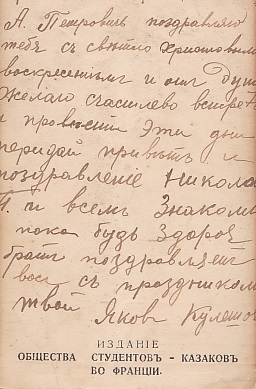 А. Петровичъ поздравляю
тебя съ свѣтло Христовым
воскресеньем и от Души
Желаю счасливо встрет
и провести Эти дни
передай привѣтъ и
поздравленіе Никола
П. и всем Знакомы
пока будь Здоров
брат поздравляет
вас съ праздником
твой Яков Кулешов
ИЗДАНІЕ
ОБЩЕСТВА СТУДЕНТОВЪ - КАЗАКОВЪ
ВО ФРАНЦІИ.